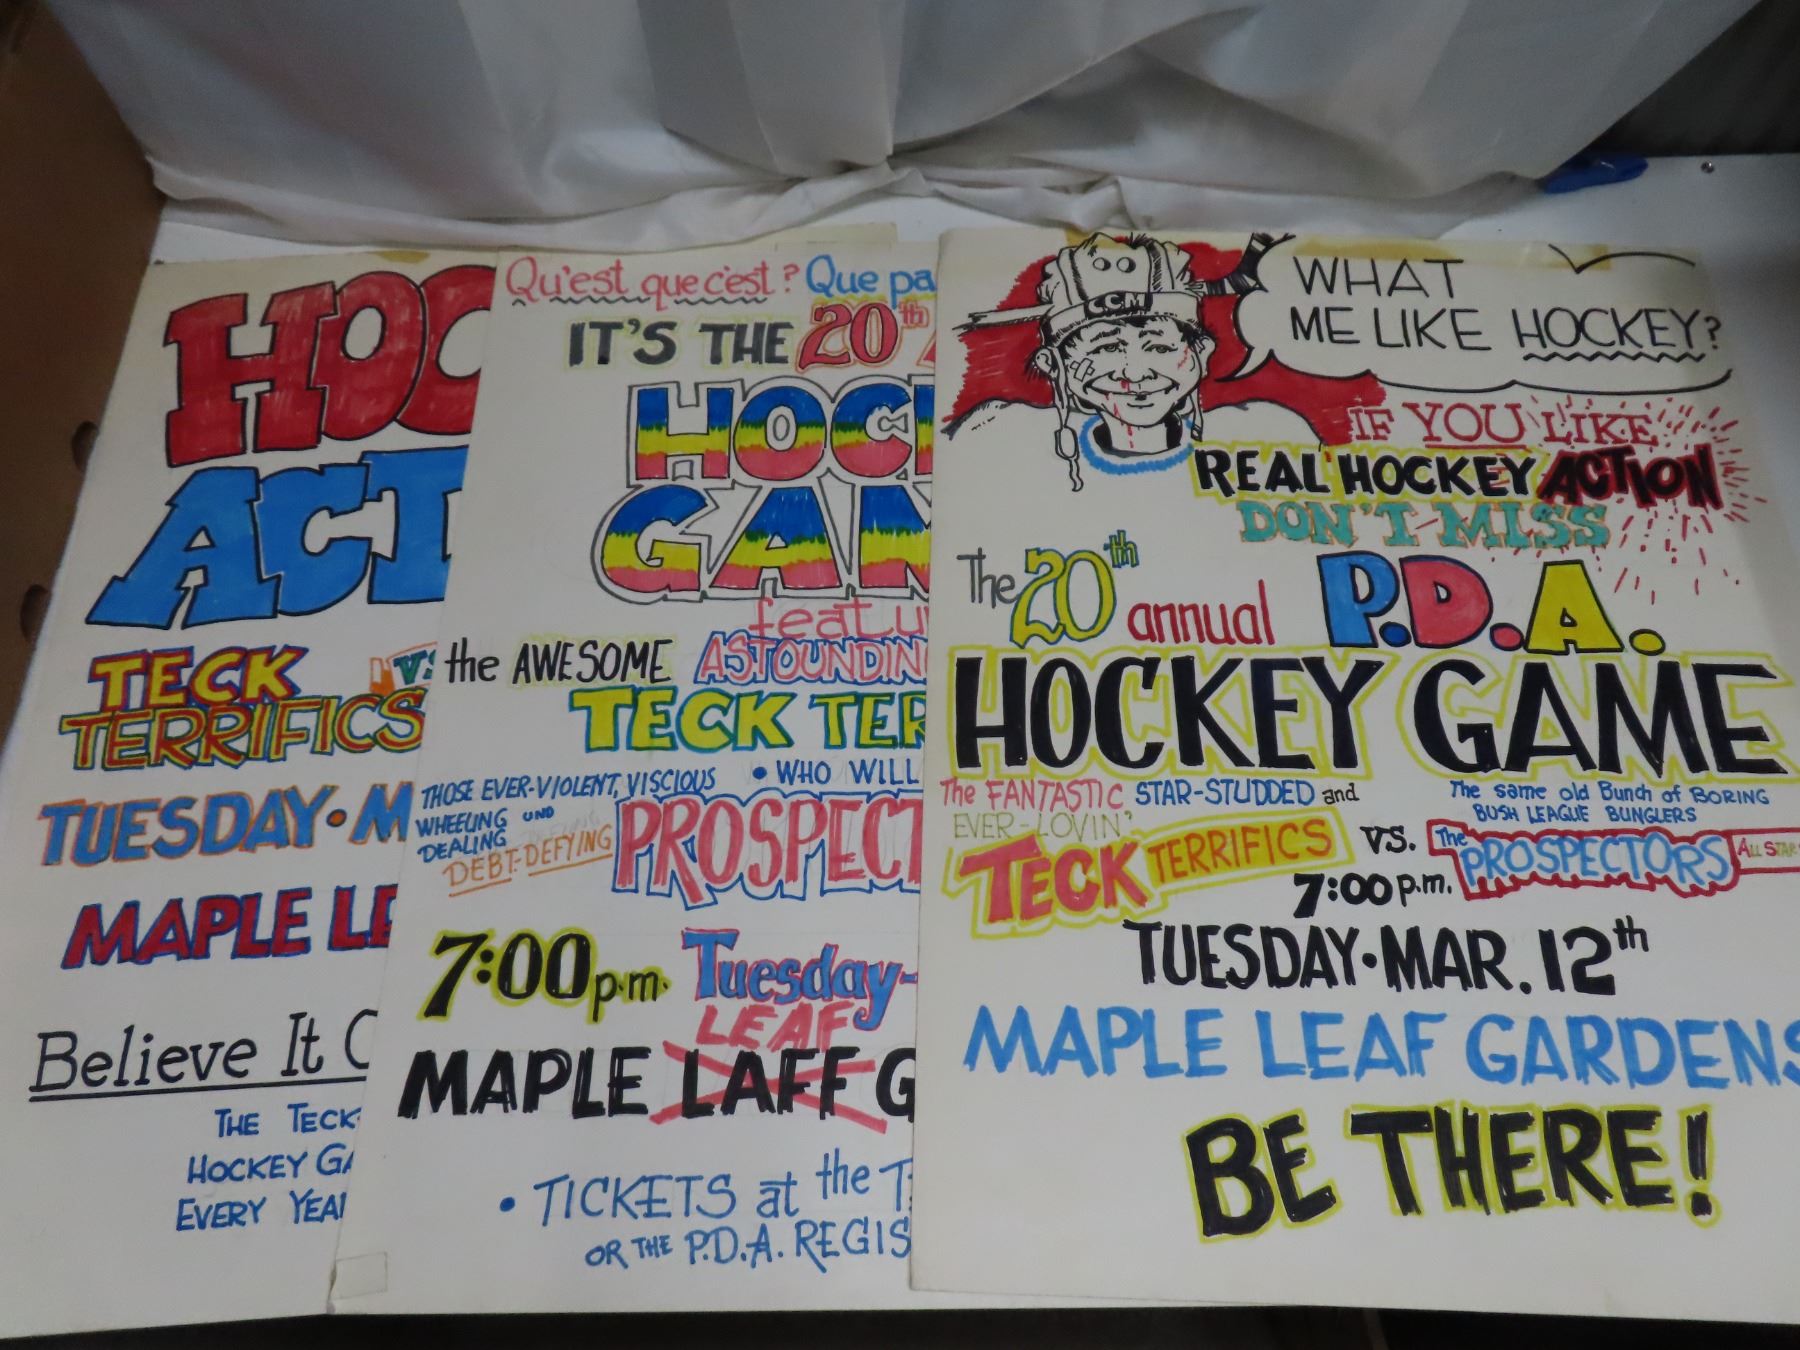 HOC
ACT
TECK VS
TERRIFICS
TUESDAY • M
MAPLE LE
Believe It O
THE TECK
HOCKEY GA
EVERY YEAR
Qu'est que c'est? Que pa
IT'S THE 20th
HOCK
GAM
featu
the AWESOME ASTOUNDING
TECK TER
THOSE EVER-VIOLENT, VISCIOUS • WHO WILL
WHEELING UND
DEALING
DEBT-DEFYING PROSPECT
7:00 p.m. Tuesday-
LEAF
MAPLE LAFF G
• TICKETS at the T
OR THE P.D.A. REGIS
CCM
WHAT
ME LIKE HOCKEY?
IF YOU LIKE
REAL HOCKEY ACTION
DON'T MISS
The 20th annual P.D.A.
HOCKEY GAME
The FANTASTIC STAR-STUDDED and
EVER-LOVIN'
TECK TERRIFICS VS. The same old Bunch of BORING
BUSH LEAGUE BUNGLERS
The PROSPECTORS ALL STAR
7:00 p.m.
TUESDAY • MAR. 12th
MAPLE LEAF GARDENS
BE THERE!